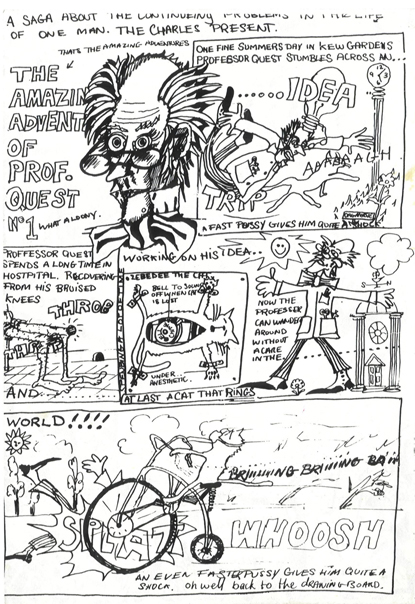 A SAGA ABOUT THE CONTINUEING PROBLEMS IN THE LIFE
OF ONE MAN. THE CHARLES PRESENT.
THATS THE AMAZING ADVENTURES
THE
AMAZIN
ADVENT
OF
PROF.
QUEST
No 1
WHAT A LOONY.
ONE FINE SUMMERS DAY IN KEW GARDENS
PROFESSOR QUEST STUMBLES ACROSS AN...
......IDEA
AAAAAAGH
TRIP
A FAST PUSSY GIVES HIM QUITE A SHOCK
PROFFESSOR QUEST
SPENDS A LONG TIME IN
HOSTPITAL, RECOVERING
FROM HIS BRUISED
KNEES
THROB
AND.....
WORKING ON HIS IDEA..
ZEBEDEE THE CAT
BELL TO SOUND
OFF WHEN CAT
IS LOST
UNDER
ANESTHETIC.
AT LAST A CAT THAT RINGS
NOW THE
PROFESSER
CAN WANDER
AROUND
WITHOUT
A CARE
IN THE...
WORLD !!!!
BRIIIIIING BRIIIIING
SPLAT
WHOOSH
AN EVEN FASTER PUSSY GIVES HIM QUITE A
SHOCK. oh well back to the DRAWING-BOARD.